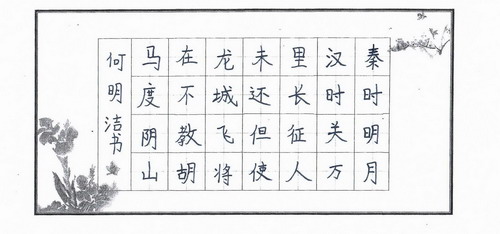 秦时明月
汉时关万
里长征人
未还但使
龙城飞将
在不教胡
马度阴山
何明洁书